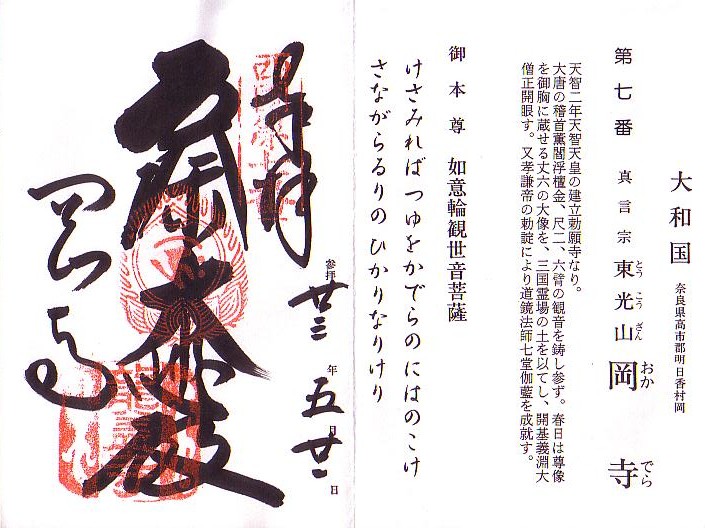 大和国 奈良県高市郡明日香村岡
第七番 真言宗 東光山 岡寺
とう こう ざん おか でら
天智二年天智天皇の建立勅願寺なり。
大唐の稽首薫閣浮檀金、尺二、六臂の観音を鋳し参ず。春日は尊像
を御胸に蔵せる丈六の大像を、三国霊場の土を以てし、開基義淵大
僧正開眼す。又孝謙帝の勅諚により道鏡法師七堂伽藍を成就す。
御本尊 如意輪観世音菩薩
けさみれば つゆをかでらの にはのこけ
さながらるりの ひかりなりけり
奉拝
参拝 廿三年 五月 廿一日
岡寺